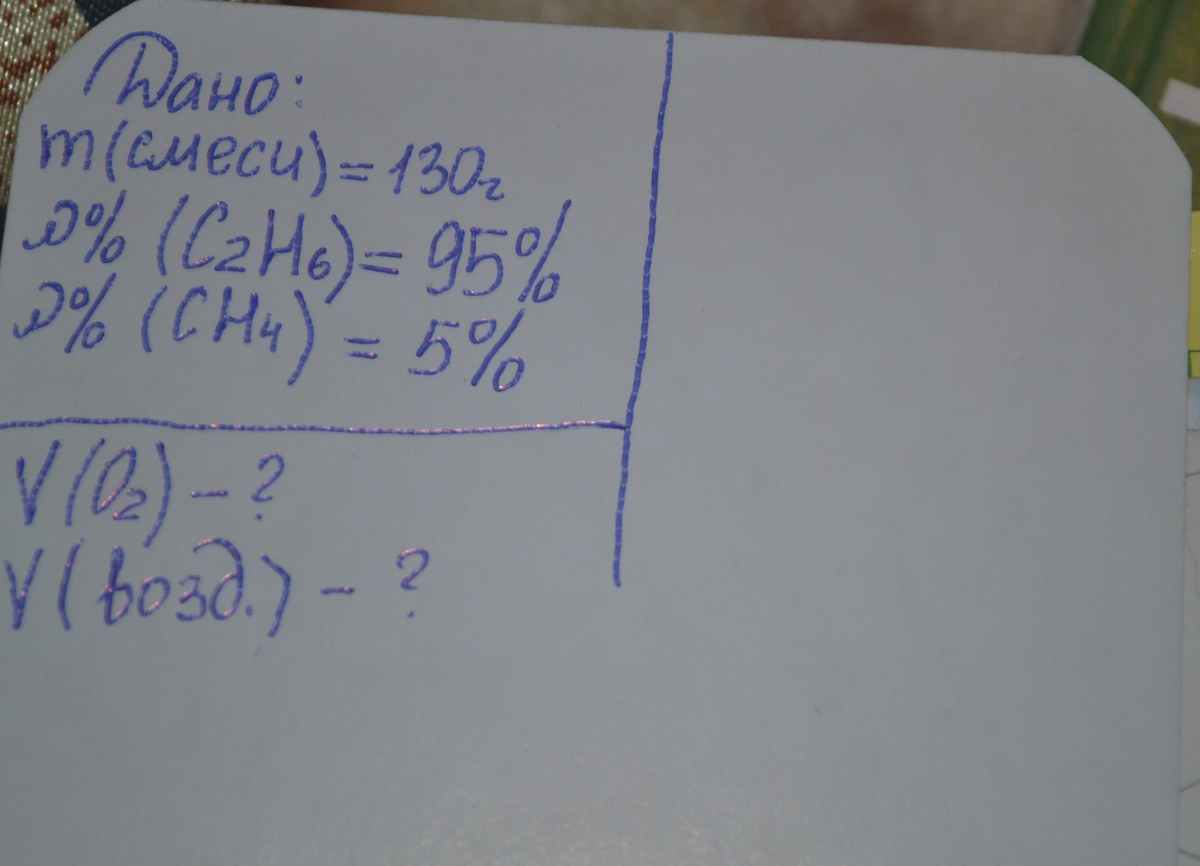 Дано:
m(смеси)=130г
ω% (C₂H₆)= 95%
ω% (CH₄) = 5%
V(O₂) – ?
V(возд.) – ?